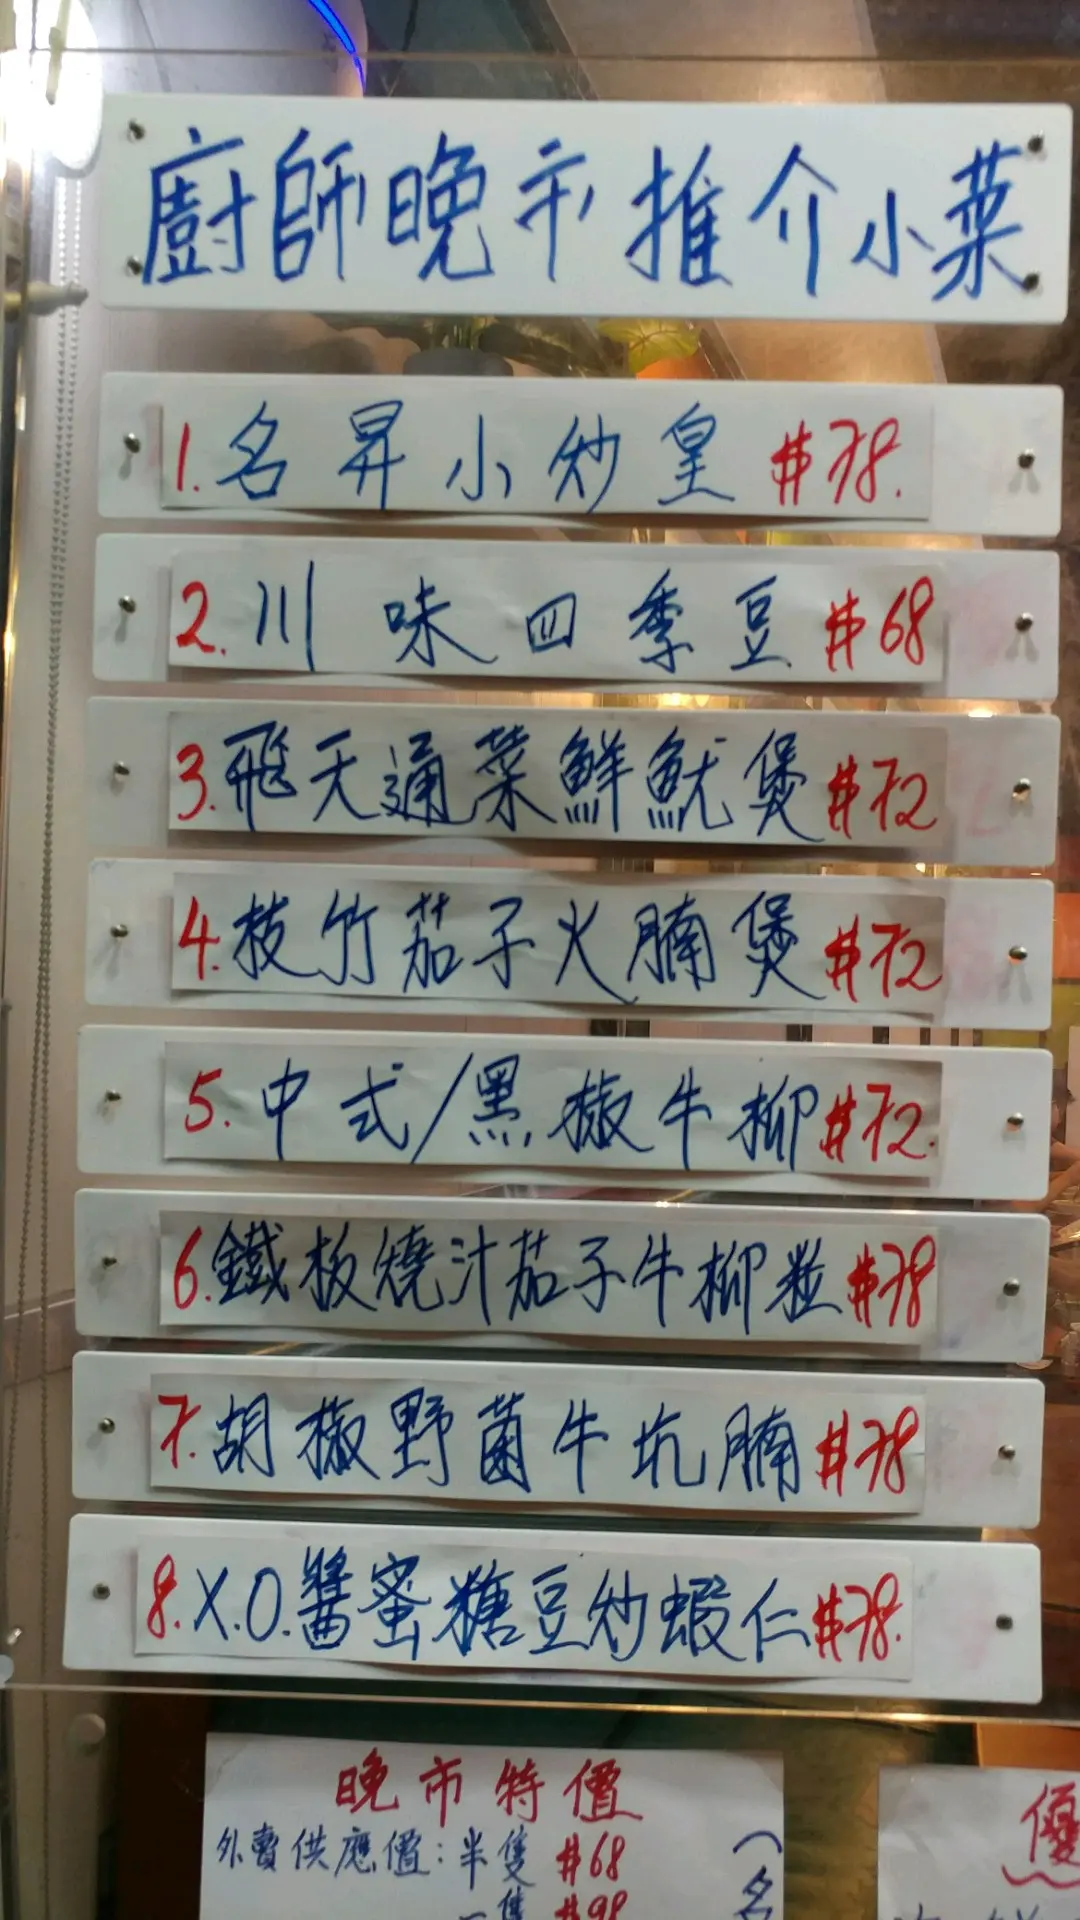 廚師晚市推介小菜
1.名昇小炒皇 $78.
2.川味四季豆 $68
3.飛天通菜鮮魷煲 $72
4.枝竹茄子火腩煲 $72
5.中式/黑椒牛柳 $72.
6.鐵板燒汁茄子牛柳粒 $78
7.胡椒野菌牛坑腩 $78
8.X.O.醬蜜糖豆炒蝦仁 $78.
晚市特價
外賣供應價:半隻 $68
一隻 $98
(名
優